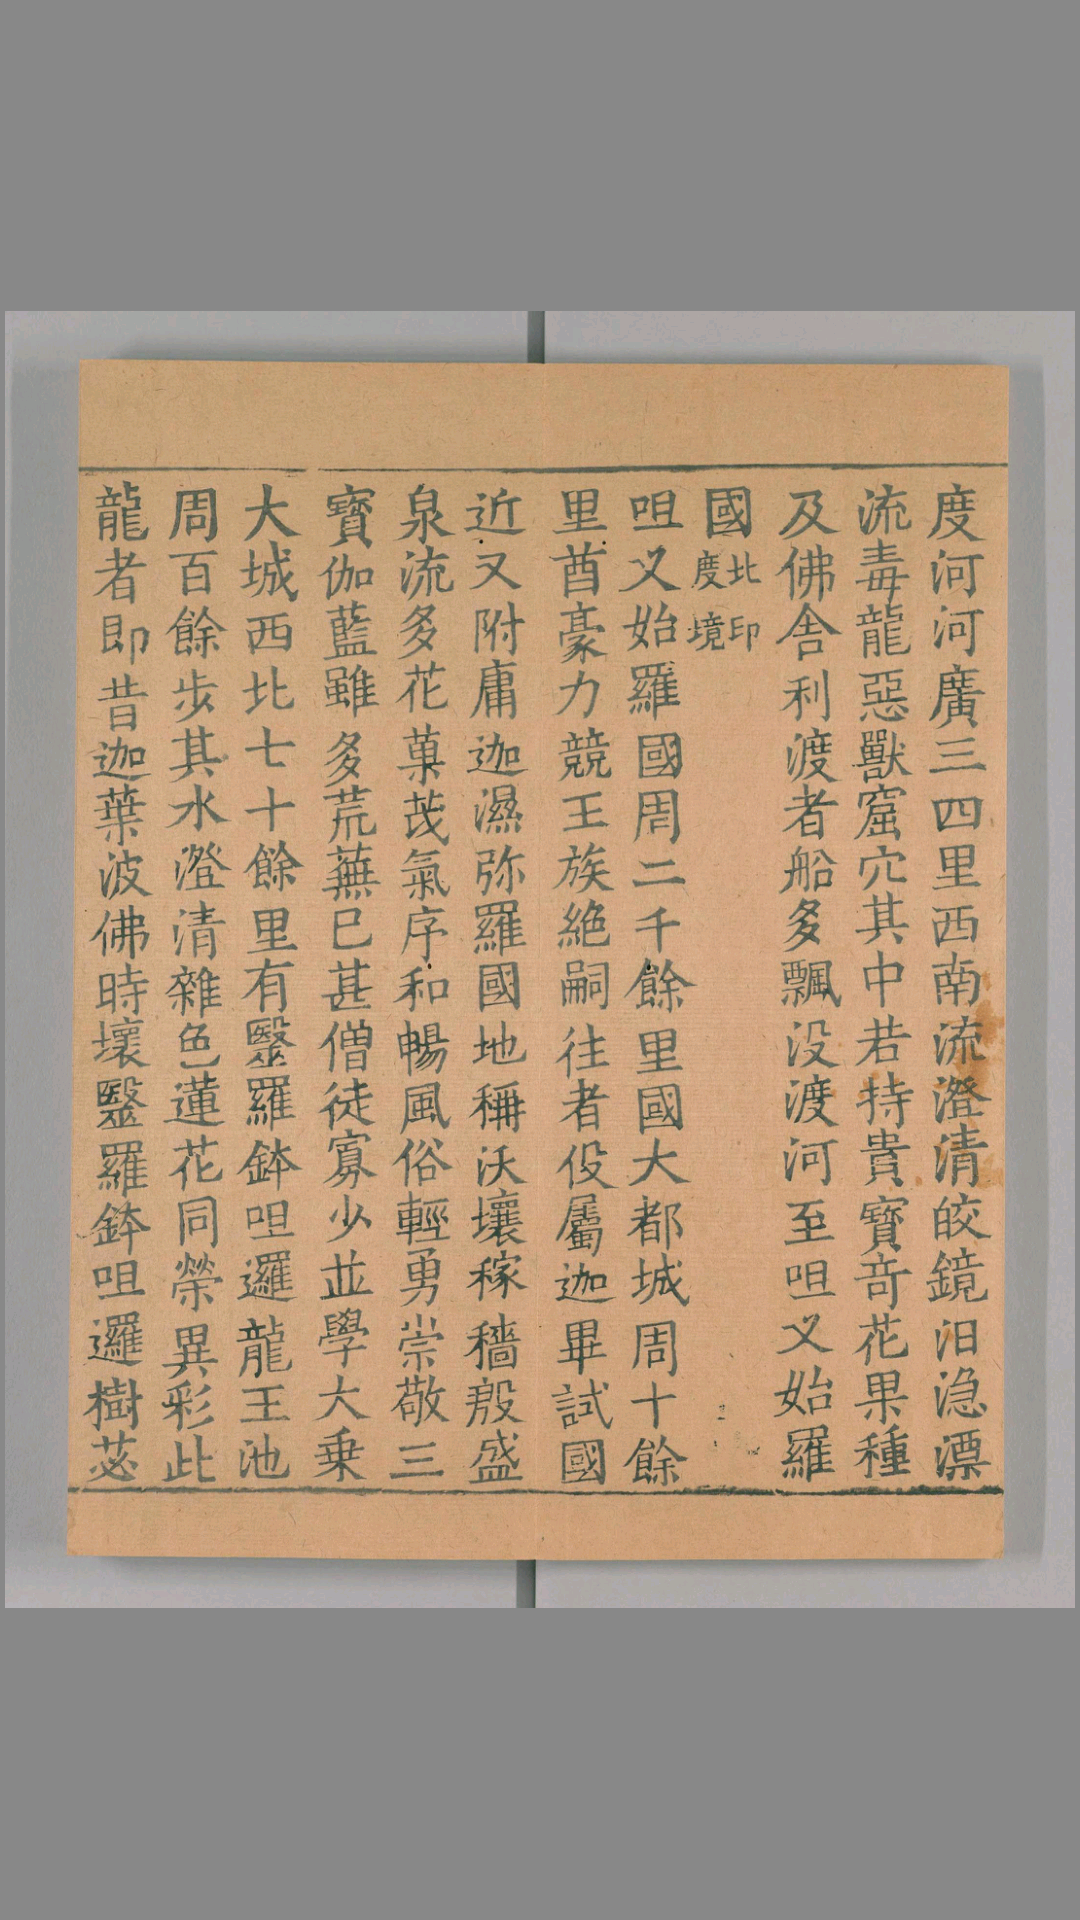 度河河廣三四里西南流澄清皎鏡汨㴔漂
流毒龍惡獸窟穴其中若持貴寶竒花果種
及佛舍利渡者船多飄没渡河至呾叉始羅
國北印度境
呾叉始羅國周二千餘里國大都城周十餘
里酋豪力競王族絶嗣往者役屬迦畢試國
近又附庸迦濕弥羅國地稱沃壤稼穡殷盛
泉流多花菓茂氣序和暢風俗輕勇崇敬三
寶伽藍雖多荒蕪已甚僧徒寡少並學大乗
大城西北七十餘里有毉羅鉢呾邏龍王池
周百餘步其水澄清雜色蓮花同榮異彩此
龍者即昔迦葉波佛時壞毉羅鉢呾邏樹苾